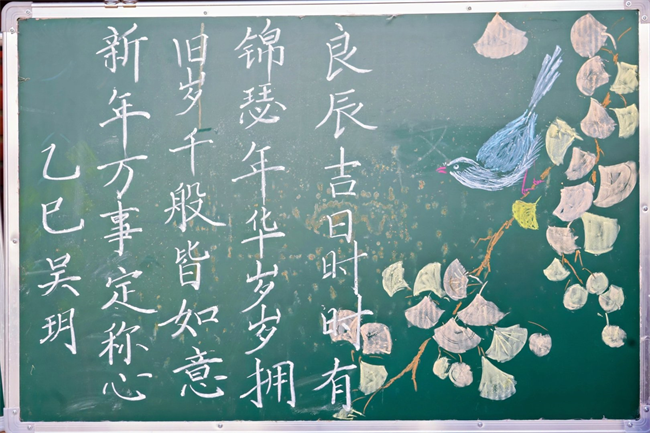 良辰吉日时时有
锦瑟年华岁岁拥
旧岁千般皆如意
新年万事定称心
乙巳吴玥